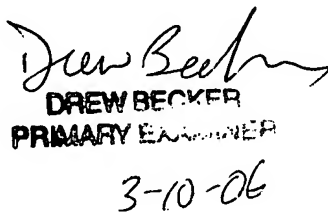 Drew Becker
DREW BECKER
PRIMARY EXAMINER
3-10-06